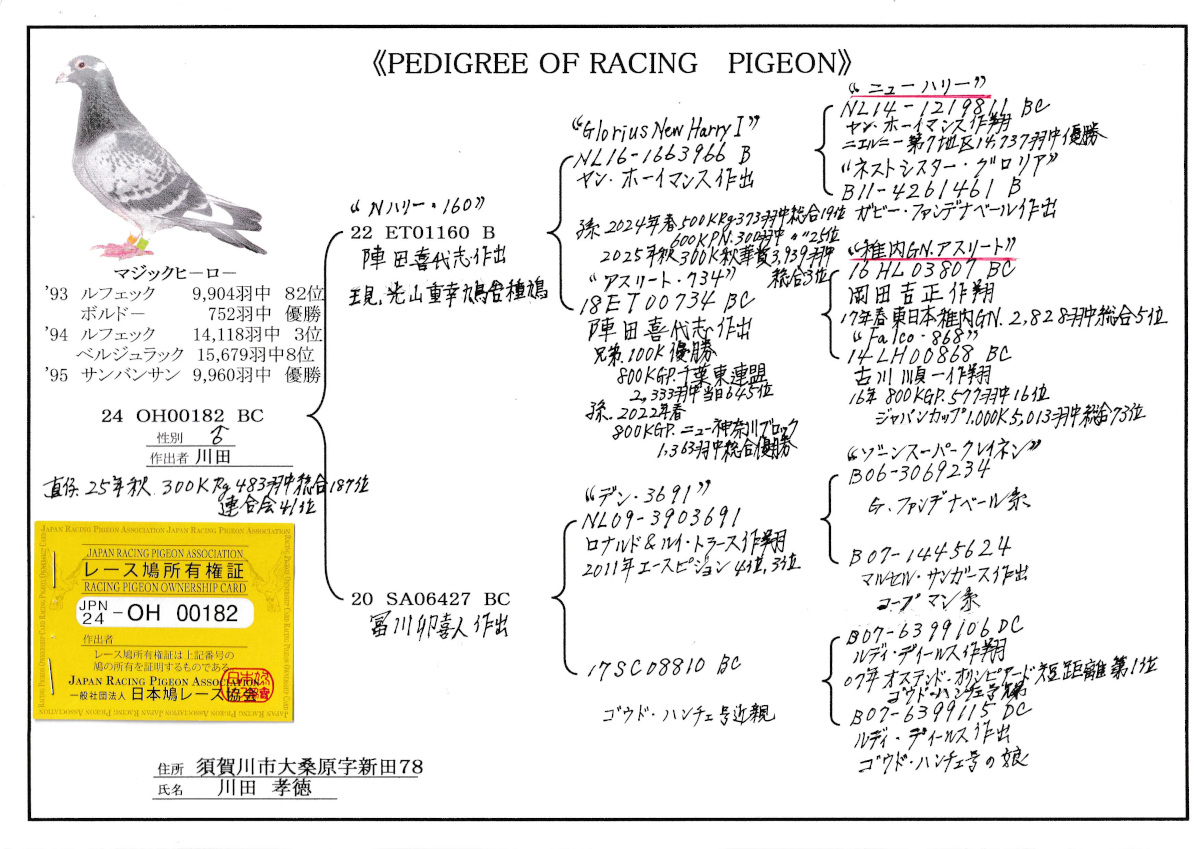 《PEDIGREE OF RACING PIGEON》
マジックヒーロー
'93 ルフェック 9,904羽中 82位
ボルドー 752羽中 優勝
'94 ルフェック 14,118羽中 3位
ベルジュラック 15,679羽中8位
'95 サンバンサン 9,960羽中 優勝
24 OH00182 BC
性別 ♂
作出者 川田
直仔.25年秋.300KRg.483羽中総合187位
連合会41位
JAPAN RACING PIGEON ASSOCIATION
レース鳩所有権証
RACING PIGEON OWNERSHIP CARD
JPN 24 - OH 00182
作出者
レース鳩所有権証は上記番号の
鳩の所有を証明するものである。
JAPAN RACING PIGEON ASSOCIATION
一般社団法人 日本鳩レース協会
"Nハリー・160"
22 ET01160 B
陣田喜代志作出
現.光山重幸鳩舎種鳩
20 SA06427 BC
冨川卯喜人作出
"Glorius New Harry I"
NL16-1663966 B
ヤン・ホーイマンス作出
孫.2024年春500KRg.373羽中総合19位
600KPN.300羽中 〃 25位
2025年秋300K秋華賞3,939羽中
総合3位
"アスリート・734"
18ET00734 BC
陣田喜代志作出
兄弟.100K優勝
800KGP.千葉東連盟
2,333羽中当日645位
孫.2022年春
800KGP.ニュー神奈川ブロック
1,363羽中総合優勝
"デン・3691"
NL09-3903691
ロナルド&ルイ・トラース作翔
2011年エースピジョン4位,3位
17SC08810 BC
ゴウド・ハンチェ号近親
"ニューハリー"
NL14-1219811 BC
ヤン・ホーイマンス作翔
ニエルニー第7地区14,737羽中優勝
"ネストシスター・グロリア"
B11-4261461 B
ガビー・ファンデナベール作出
"稚内GN.アスリート"
16HL03807 BC
岡田吉正作翔
17年春東日本稚内GN.2,828羽中総合5位
"Falco・868"
14LH00868 BC
古川順一作翔
16年800KGP.577羽中16位
ジャパンカップ1.000K5,013羽中総合73位
"ゾーンスーパークレイネン"
B06-3069234
G.ファンデナベール系
B07-1445624
マルセル・サンガース作出
コープマン系
B07-6399106 DC
ルディ・ディールス作翔
07年オステンド・オリンピアード短距離第1位
ゴウド・ハンチェ号兄弟
B07-6399115 DC
ルディ・ディールス作出
ゴウド・ハンチェ号の娘
住所 須賀川市大桑原字新田78
氏名 川田 孝徳